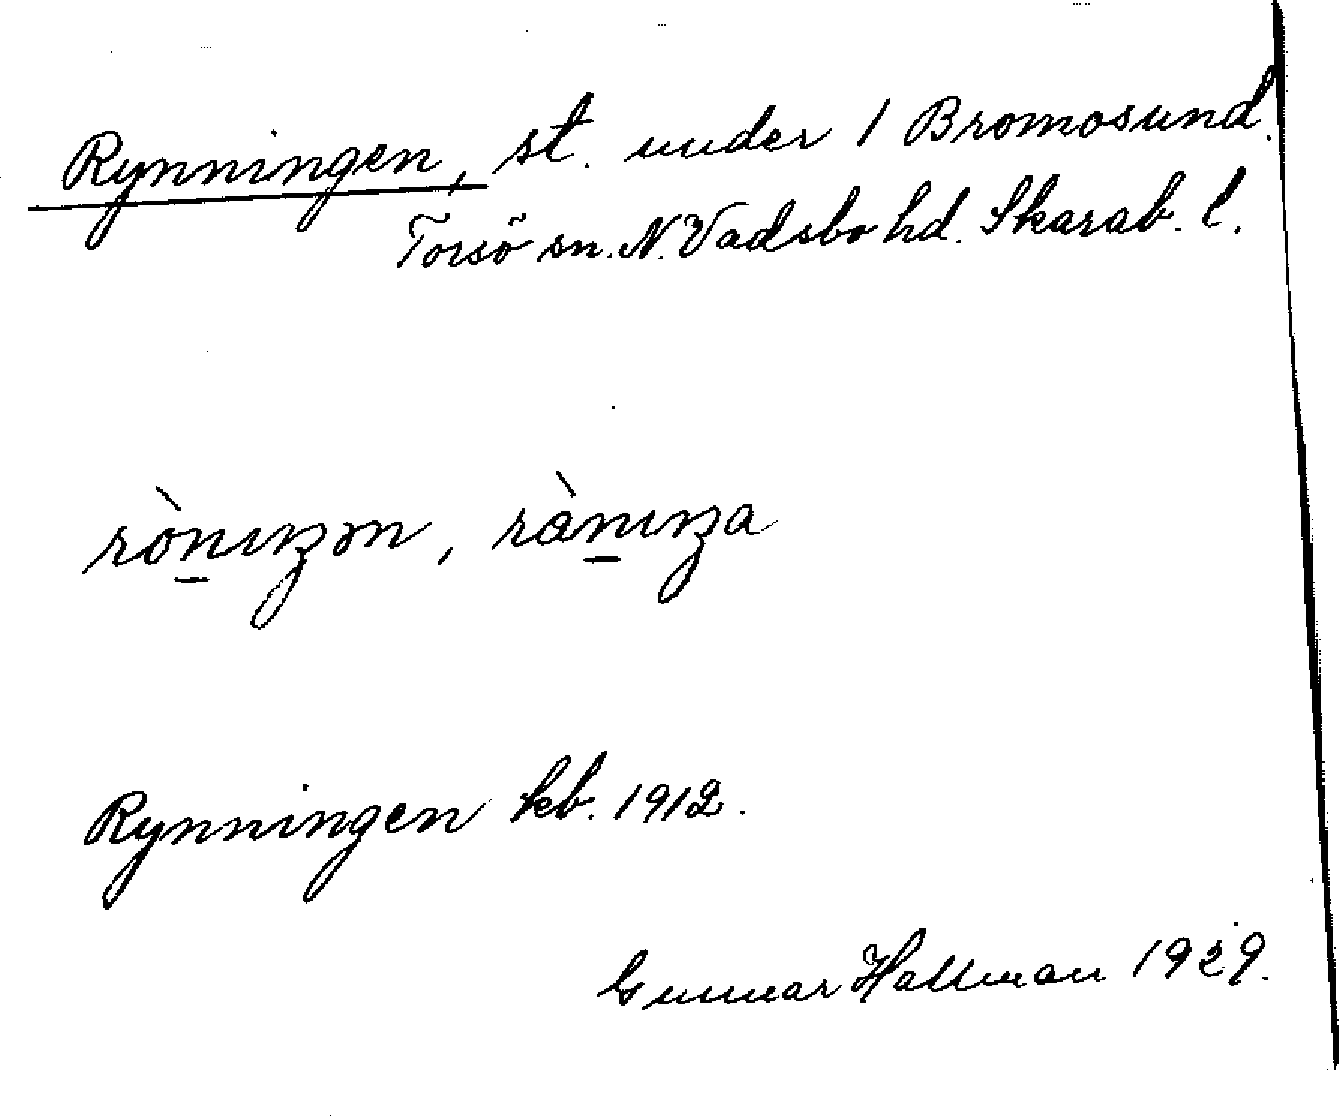 Rynningen, st. under 1 Bromosund.
Torsö sn. N. Vadsbo hd. Skarab. l.
ròn̲ıŋən, ràn̲ıŋa
Rynningen kb. 1912.
Gunnar Hallman 1929.